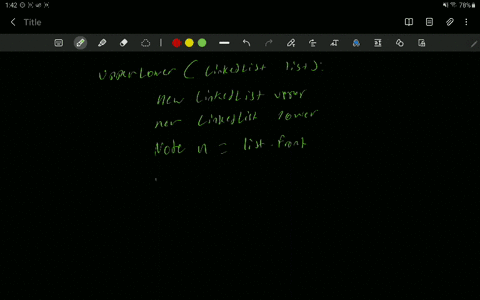 1:42
78%
Title
upperLower ( LinkedList list):
new LinkedList upper
new LinkedList lower
Node n = list.front